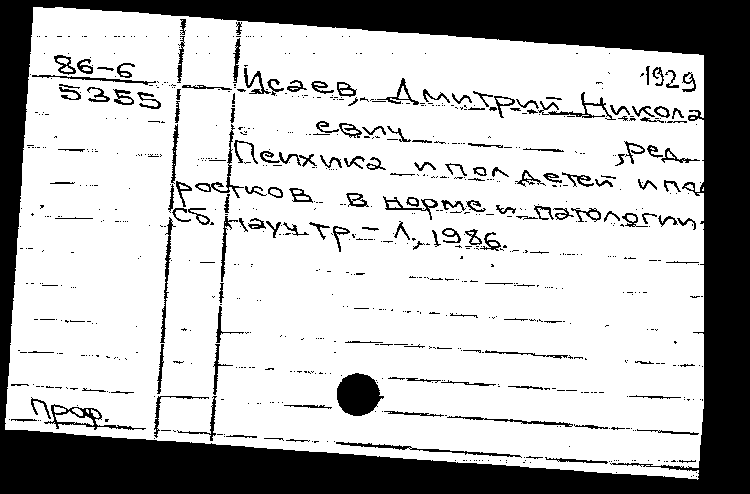 86-6
5355
1929
Исаев, Дмитрий Никола
евич
, ред.
Психика и пол детей и под
ростков в норме и патологии.
Сб. науч. тр. - Л., 1986.
Проф.